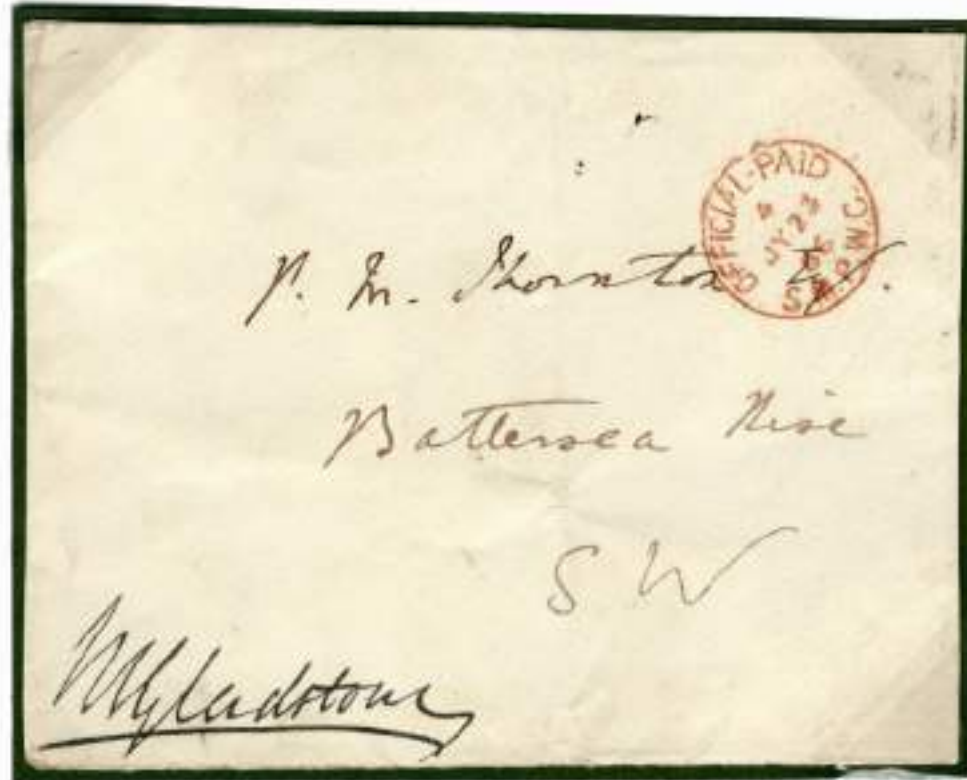 OFFICIAL-PAID
S.W.
JY 23
P. M. Thornton Esq.
Battersea Rise
S W
WGladstone